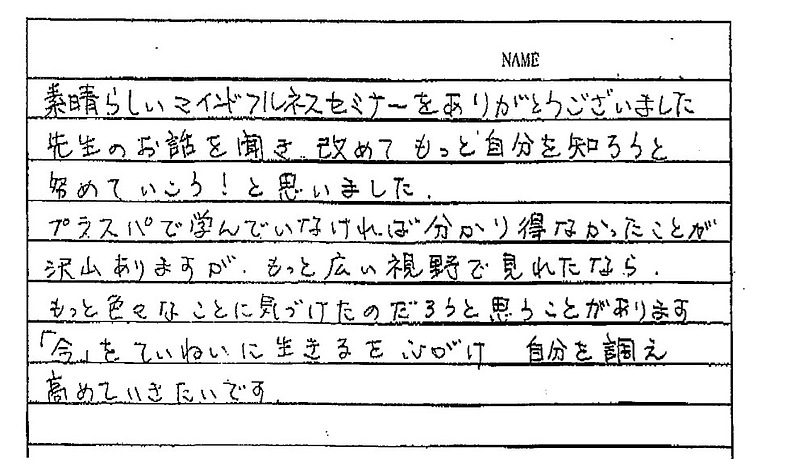 NAME
素晴らしいマインドフルネスセミナーをありがとうございました
先生のお話を聞き 改めて もっと自分を知ろうと
努めていこう！と思いました.
プラスパで学んでいなければ分かり得なかったことが
沢山ありますが. もっと広い視野で見れたなら.
もっと色々なことに気づけたのだろうと思うことがあります
「今」をていねいに生きるを心がけ 自分を調え
高めていきたいです.